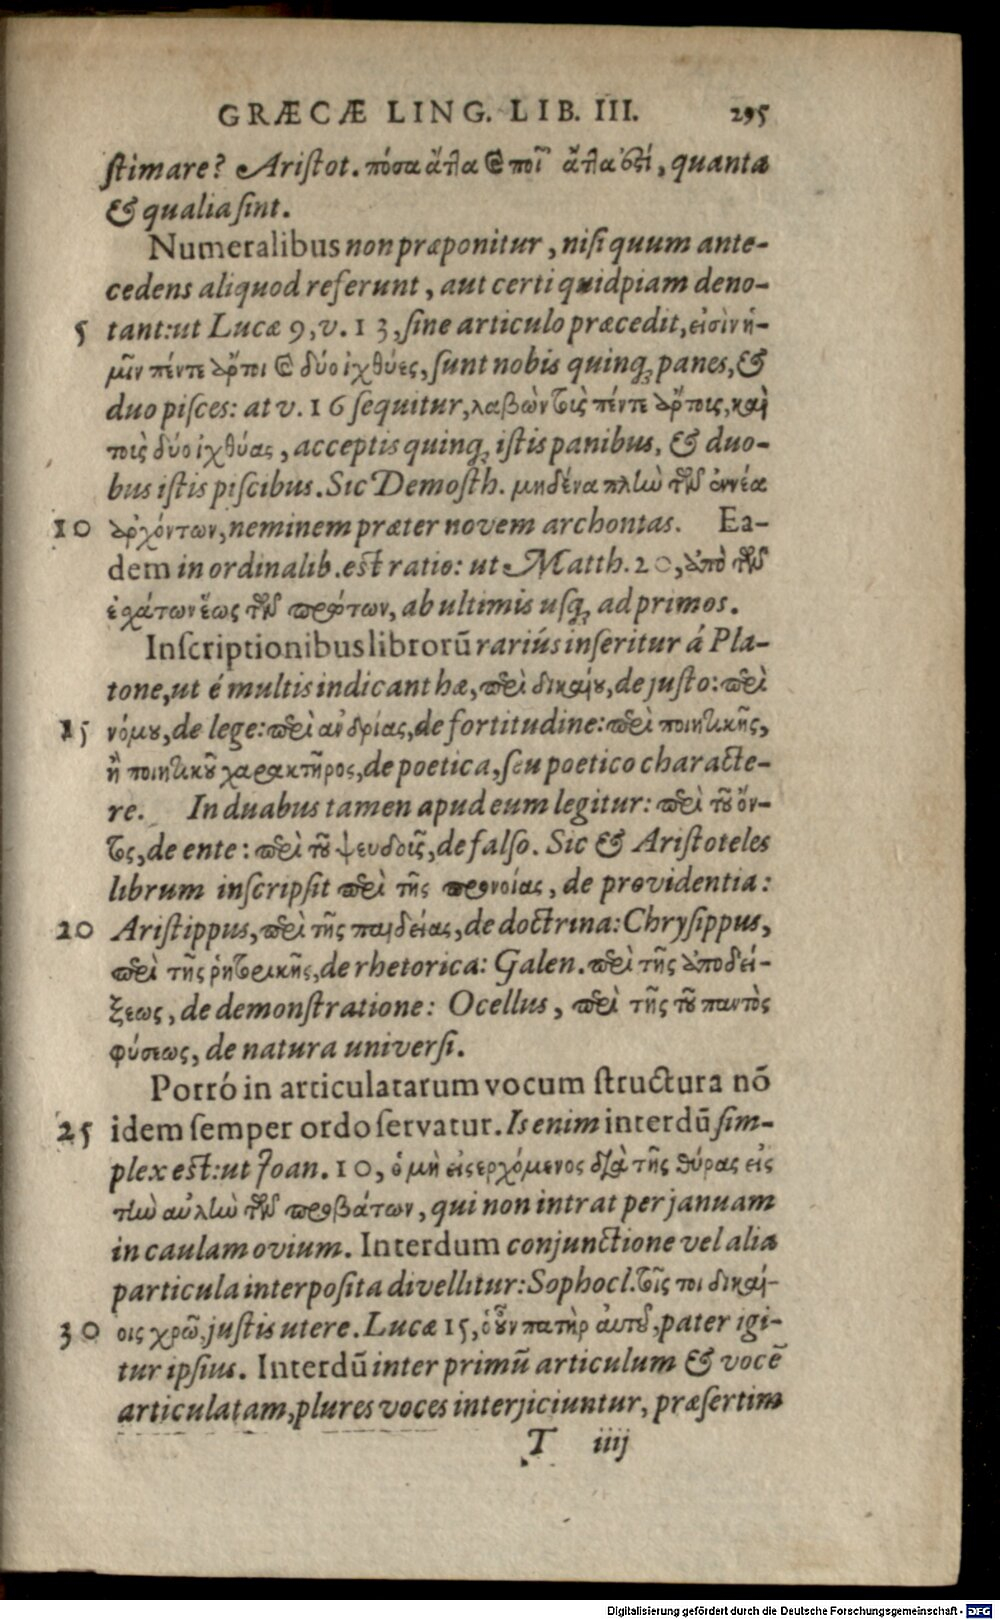 GRÆCÆ LING. LIB. III. 295
ſtimare? Ariſtot. πόσα ἄττα καὶ ποῖ' ἄττα ἐστί, quanta
& qualia ſint.
Numeralibus non præponitur, niſi quum ante-
cedens aliquod referunt, aut certi quidpiam deno-
5 tant: ut Lucæ 9, v. 13, ſine articulo præcedit, εἰσὶν ἡ-
μῖν πέντε ἄρτοι καὶ δύο ἰχθύες, ſunt nobis quinq; panes, &
duo piſces: at v. 16 ſequitur, λαβὼν τοὺς πέντε ἄρτους, καὶ
τοὺς δύο ἰχθύας, acceptis quinq; iſtis panibus, & duo-
bus iſtis piſcibus. Sic Demoſth. μηδένα πλὴν τῶν ἐννέα
10 ἀρχόντων, neminem præter novem archontas. Ea-
dem in ordinalib. eſt ratio: ut Matth. 20, ἀπὸ τῶν
ἐχάτων ἕως τῶν πρώτων, ab ultimis uſq; ad primos.
Inſcriptionibus librorū rariús inſeritur á Pla-
tone, ut é multis indicant hæ, περὶ δικαίου, de juſto: περὶ
15 νόμου, de lege: περὶ ανδρίας, de fortitudine: περὶ ποιητικῆς,
ἢ ποιητικοῦ χαρακτῆρος, de poetica, ſeu poetico characte-
re. In duabus tamen apud eum legitur: περὶ τοῦ ὄν-
τος, de ente: περὶ τοῦ ψευδοῦς, de falſo. Sic & Ariſtoteles
librum inſcripſit περὶ τῆς προνοίας, de providentia:
20 Ariſtippus, περὶ τῆς παιδείας, de doctrina: Chryſippus,
περὶ τῆς ῥητορικῆς, de rhetorica: Galen. περὶ τῆς ἀποδεί-
ξεως, de demonſtratione: Ocellus, περὶ τῆς τοῦ παντὸς
φύσεως, de natura univerſi.
Porró in articulatarum vocum ſtructura nō
25 idem ſemper ordo ſervatur. Is enim interdū ſim-
plex eſt: ut Joan. 10, ὁ μὴ εἰσερχόμενος διὰ τῆς θύρας εἰς
τὴν αὐλὴν τῶν προβάτων, qui non intrat per januam
in caulam ovium. Interdum conjunctione vel alia
particula interpoſita divellitur: Sophocl. τοῖς τοι δικαί-
30 οις χρῶ. juſtis utere. Lucæ 15, ὁ οὖν πατὴρ αὐτοῦ, pater igi-
tur ipſius. Interdū inter primū articulum & vocē
articulatam, plures voces interjiciuntur, præſertim
T iiij
Digitalisierung gefördert durch die Deutsche Forschungsgemeinschaft - DFG